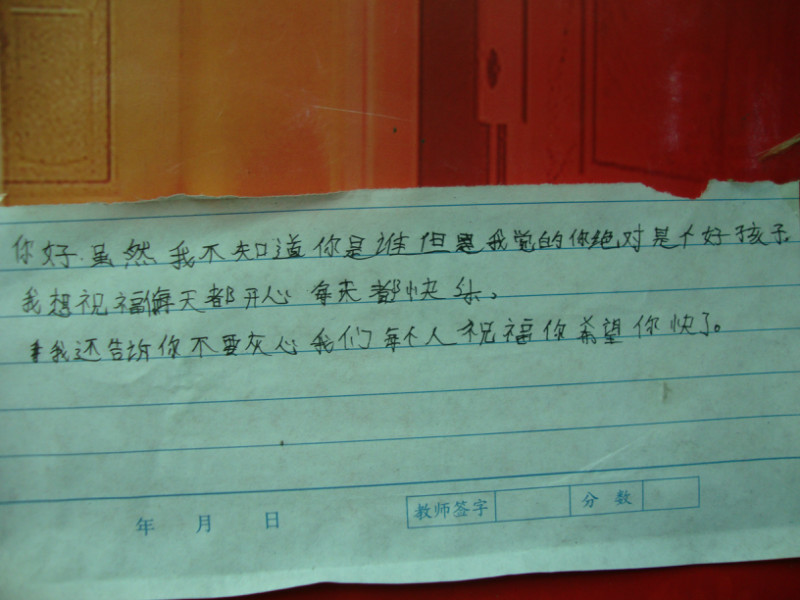 你好.虽然我不知道你是谁但是我觉的你绝对是个好孩子.
我想祝福每天都开心 每天都快乐。
我还告诉你不要灰心我们每个人祝福你希望你快了。
年 月 日 教师签字 分数